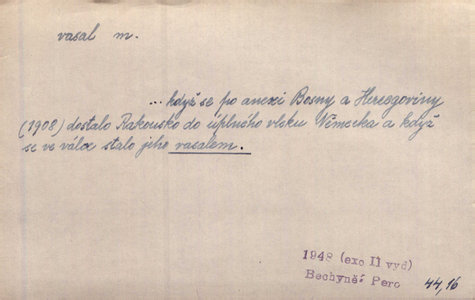 vasal m.
... když se po anexi Bosny a Hercegoviny
(1908) dostalo Rakousko do úplného vleku Německa a když
se ve válce stalo jeho vasalem.
1948 (exc II vyd)
Bechyně: Pero
44,16